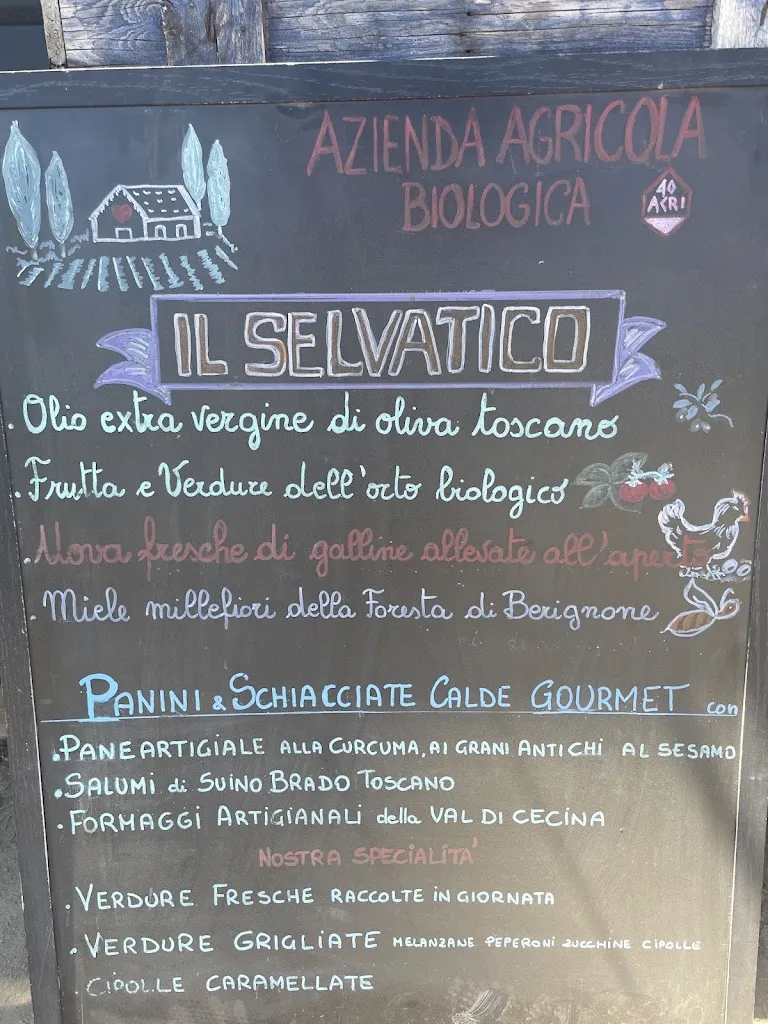 AZIENDA AGRICOLA
BIOLOGICA
40
ACRI
IL SELVATICO
. Olio extra vergine di oliva toscano
. Frutta e Verdure dell'orto biologico
. Uova fresche di galline allevate all'aperto
. Miele millefiori della Foresta di Berignone
PANINI & SCHIACCIATE CALDE GOURMET con
. PANE ARTIGIALE ALLA CURCUMA, AI GRANI ANTICHI AL SESAMO
. SALUMI di SUINO BRADO TOSCANO
. FORMAGGI ARTIGIANALI della VAL DI CECINA
NOSTRA SPECIALITA'
. VERDURE FRESCHE RACCOLTE IN GIORNATA
. VERDURE GRIGLIATE MELANZANE PEPERONI ZUCCHINE CIPOLLE
. CIPOLLE CARAMELLATE